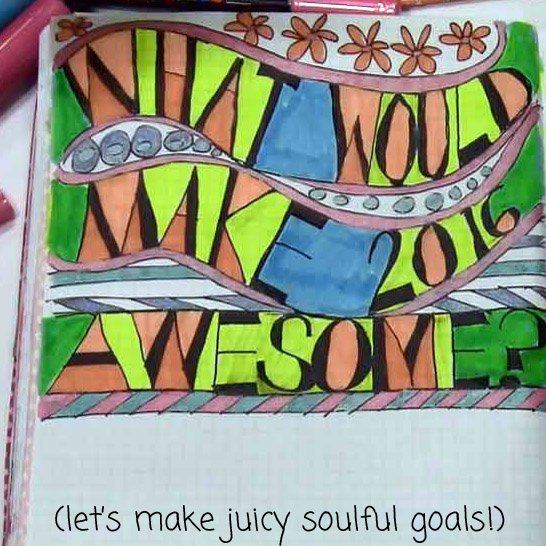 WHAT WOULD
MAKE 2016
AWESOME?
(let's make juicy soulful goals!)